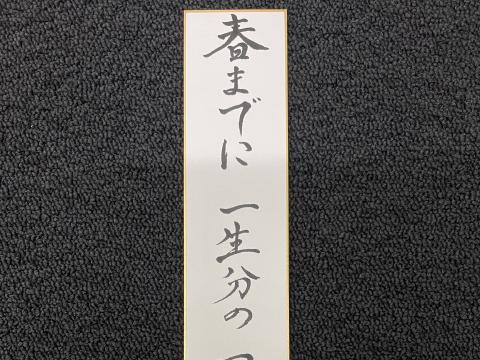 春までに 一生分の